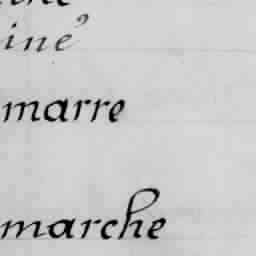 ine
marre
marche